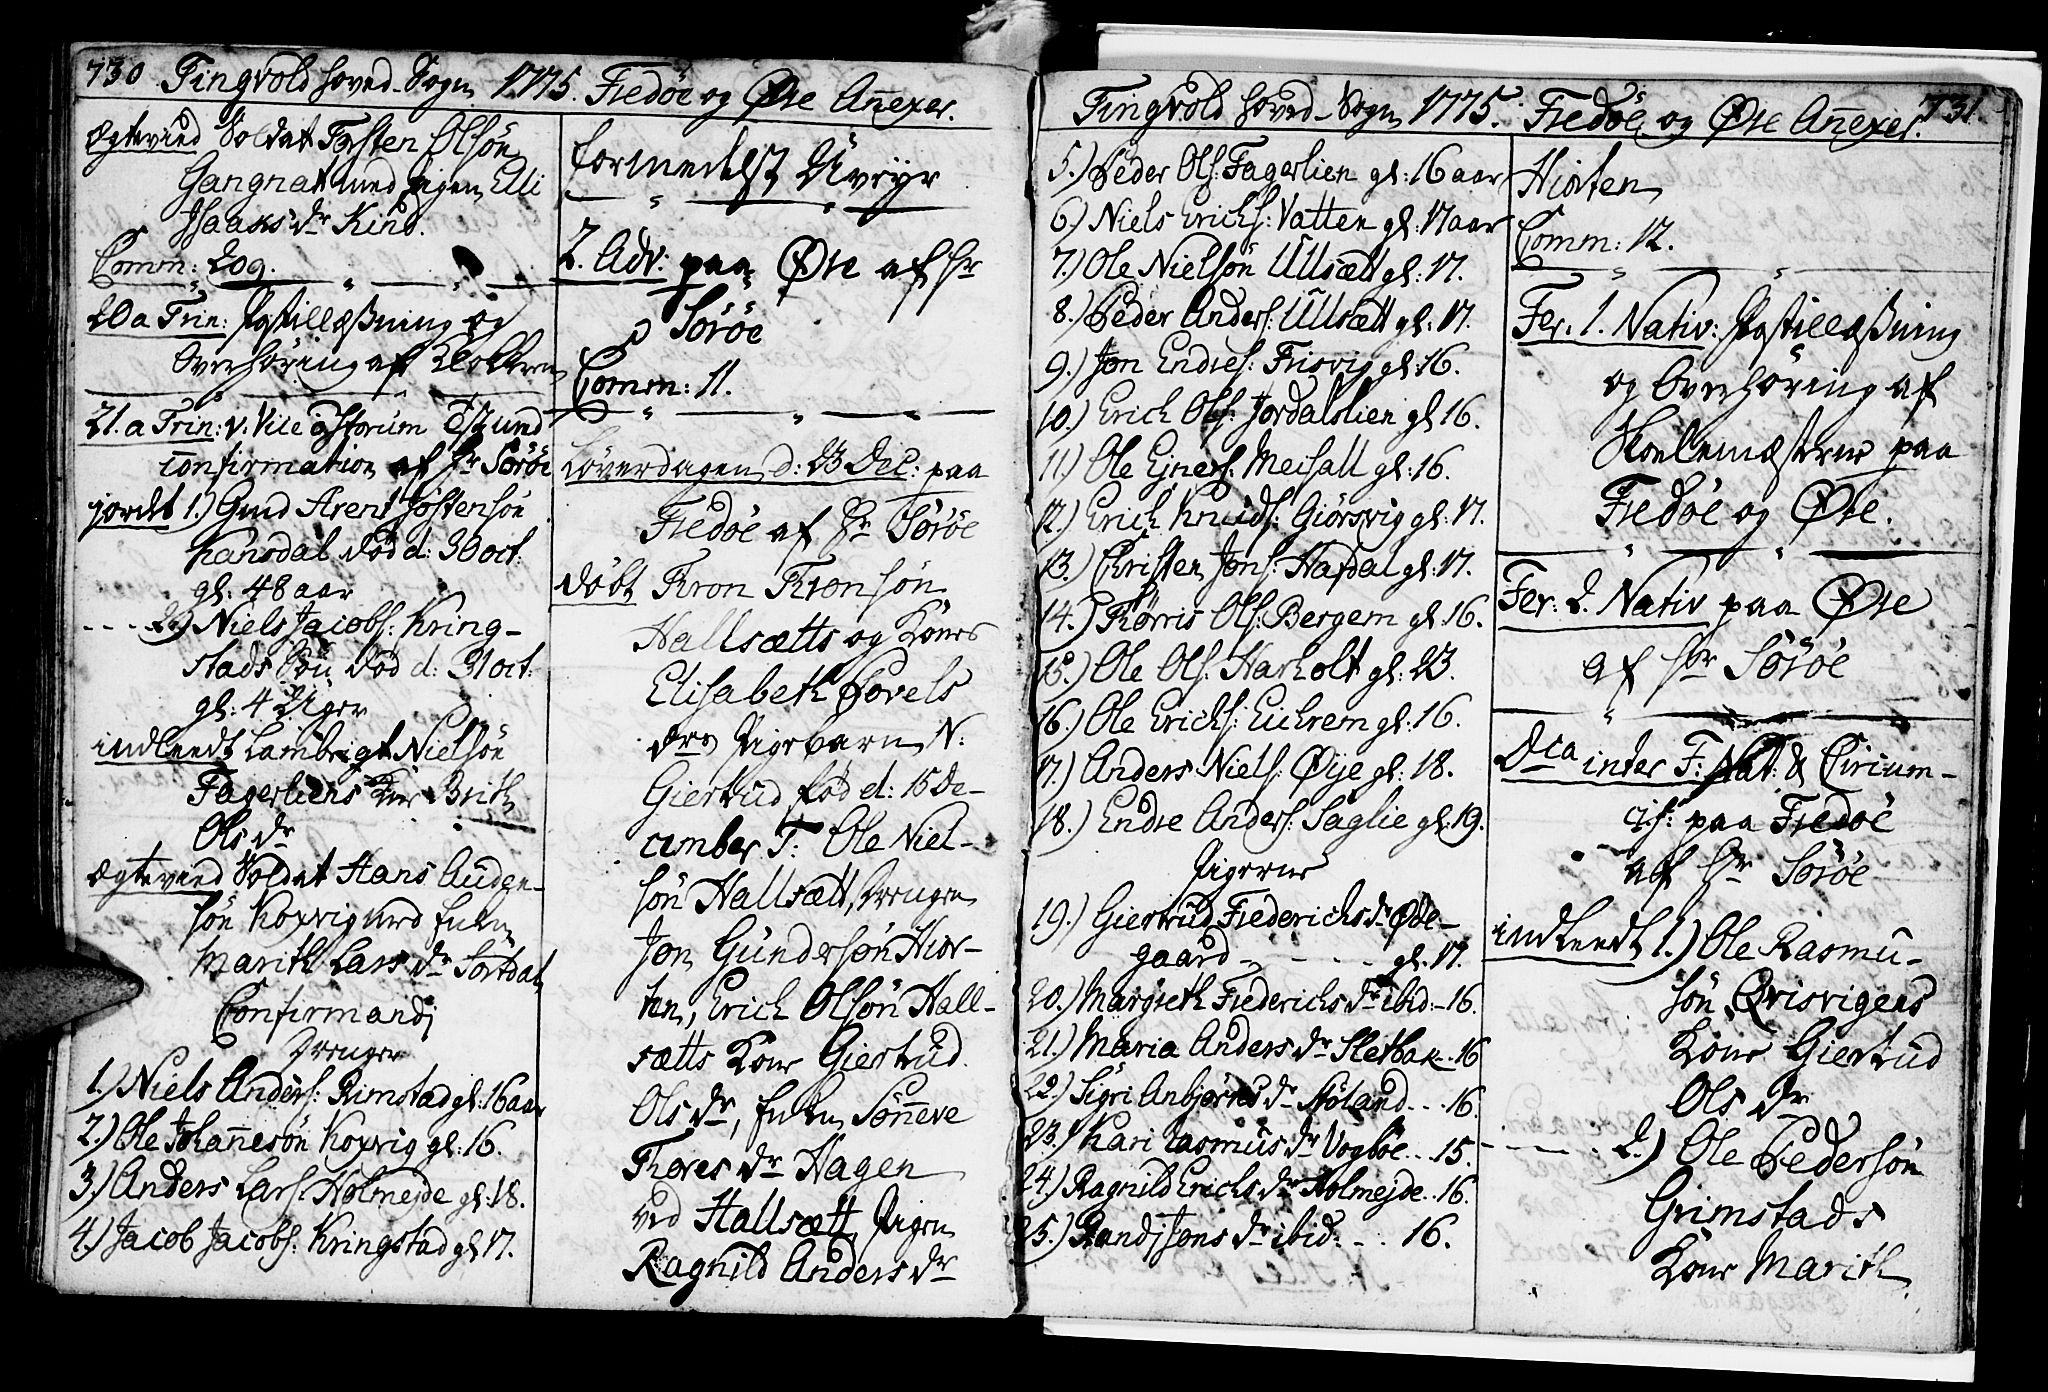 730 Tingvold hoved-Sogn 1775. Fredøe og Øre Añexer.
ægtevied Soldat Tosten Olsön
Gangnat med pigen Elli
Isaaks dr Kind.
Comm: 209.
20 a Trin: Postillæsning og
Overhöring af Klokkeren
21. a Trin: v. Vice pastorum Eslund
confirmation af Hr Söröe
jordet 1.) Gmd Arent Jostensön
Kansdal död d: 30 oct:
gl: 48 aar
2.) Niels Jacobs: Kring-
stads Sön död d: 31 oct:
gl: 4 Uger
indleedt Lambrigt Nielsön
Fagerliens Kone Brith
Ols dr
ægteviet Soldat Hans Auden-
sön Koxvig med Enken
Marith Lars dr Tortdal
Confirmandi
Drenger
1.) Niels Anders: Rimstad gl: 16 aar
2.) Ole Johañesön Koxvig gl: 16.
3.) Anders Lars: Holmejde gl: 18.
4.) Jacob Jacobs: Kringstad gl: 17.
formedelst Uveyr
2. Adv: paa Øre af Hr
Söröe
Comm: 11.
Löverdagen d: 23 Dec: paa
Fredöe af Hr Söröe
döbt Tron Tronsön
Hallsætts og Kones
Elisabeth Povels
drs Pigebarn N:
Giertrud fød d: 15 De-
cember T: Ole Niel-
sön Hallsætt, Drengen
Jon Gundersön Hior-
ten, Erich Olsön Hall-
sætts Kone Giertrud
Ols dr, Enken Söñeve
Thores dr Hagen
ved Hallsætt, Pigen
Ragnild Anders dr
Tingvold hoved-Sogn 1775. Fredöe og Øre Añexer. 731.
5.) Peder Ols: Fagerlien gl: 16 aar
6.) Niels Erichs: Vatten gl: 17 aar
7.) Ole Nielsön Ullsætt gl: 17.
8.) Peder Anders: Ullsætt gl: 17.
9.) Jon Endres: Frisvig gl: 16.
10.) Erich Ols: Jordalslien gl: 16.
11.) Ole Ejners: Meisall gl: 16.
12.) Erich Knuds: Giörsvig gl: 17.
13.) Christen Jons: Hafdal gl: 17.
14.) Thorris Ols: Bergem gl: 16.
15.) Ole Ols: Harholt gl: 23.
16.) Ole Erichs: Eichrem gl: 16.
17.) Anders Niels: Øije gl: 18.
18.) Endre Anders: Saglie gl: 19.
Pigerne
19.) Giertrud Frederichs dr Øde-
gaard - - - - gl: 17.
20.) Margreth Frederichs dr ibid: - 16.
21.) Maria Anders dr Sletbak - 16
22.) Sigri Anbjörns dr Höland - - - 16.
23.) Kari Rasmus dr Vogböe - - 15.
24.) Ragnild Erichs dr Holmejde - - 16.
25.) Randi Jons dr ibid: - - 16.
Hiorten
Comm: 12.
Fer. 1. Nativ: Postillæsning
og Overhöring af
Skolemæsterne paa
Fredöe og Øre.
Fer: 2. Nativ paa Øre
af Hr Söröe
Dca inter F: Nat: & Circum-
cis: paa Fredöe
af Hr Söröe
indleedt 1.) Ole Rasmu-
sön Qvisvigens
Kone Giertrud
Ols dr
2.) Ole Pedersön
Grimstads
Kone Marith